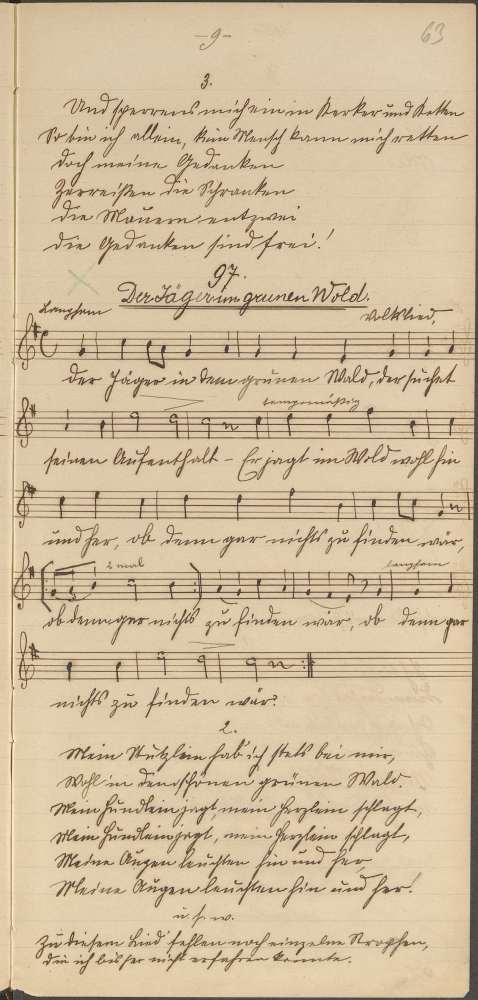 -9-
63
3.
Und sperrens mich ein in Kerker und Ketten
So bin ich allein, kein Mensch kann mich retten
Doch meine Gedanken
Zerreißen die Schranken
Die Mauern entzwei
Die Gedanken sind frei!
97.
Der Jäger im grünen Wold.
Langsam
Volkslied.
Der Jäger in dem grünen Wald, der suchet
tempomäßig
seinen Aufenthalt - Er jagt im Wold wohl hin
und her, ob denn gar nichts zu finden wär,
2 mal
langsam
ob denn gar nichts zu finden wär, ob denn gar
nichts zu finden wär?
2.
Mein Stutzlein hab ich stets bei mir,
Wohl in dem schönen grünen Wald.
Mein Hundlein jagt, mein Herzlein schlagt,
Mein Hundlein jagt, mein Herzlein schlagt,
Meine Augen leuchten hin und her,
Meine Augen leuchten hin und her!
u. s. w.
Zu diesem Lied fehlen noch einzelne Strophen,
die ich bisher nicht erfahren konnte.